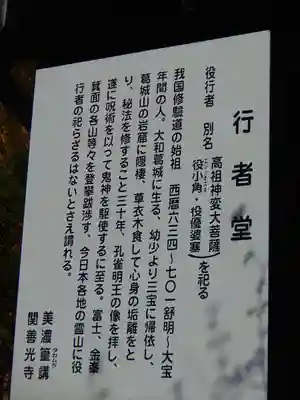 行者堂
役行者 別名 高祖神変大菩薩
(役小角・役優婆塞)を祀る
我国修験道の始祖 西暦六三四~七〇一舒明~大宝
年間の人。大和葛城に生る、幼少より三宝に帰依し、
葛城山の岩窟に隠棲、草衣木食して心身の垢離をと
り、秘法を修すること三十年、孔雀明王の像を拝し、
遂に呪術を以って鬼神を駆使するに至る。富士、金峯
箕面の各山等々を登攀跋渉す、今日本各地の霊山に役
行者の祀らざるはないとさえ謂れる。
美濃篁講
タカムラ
関善光寺